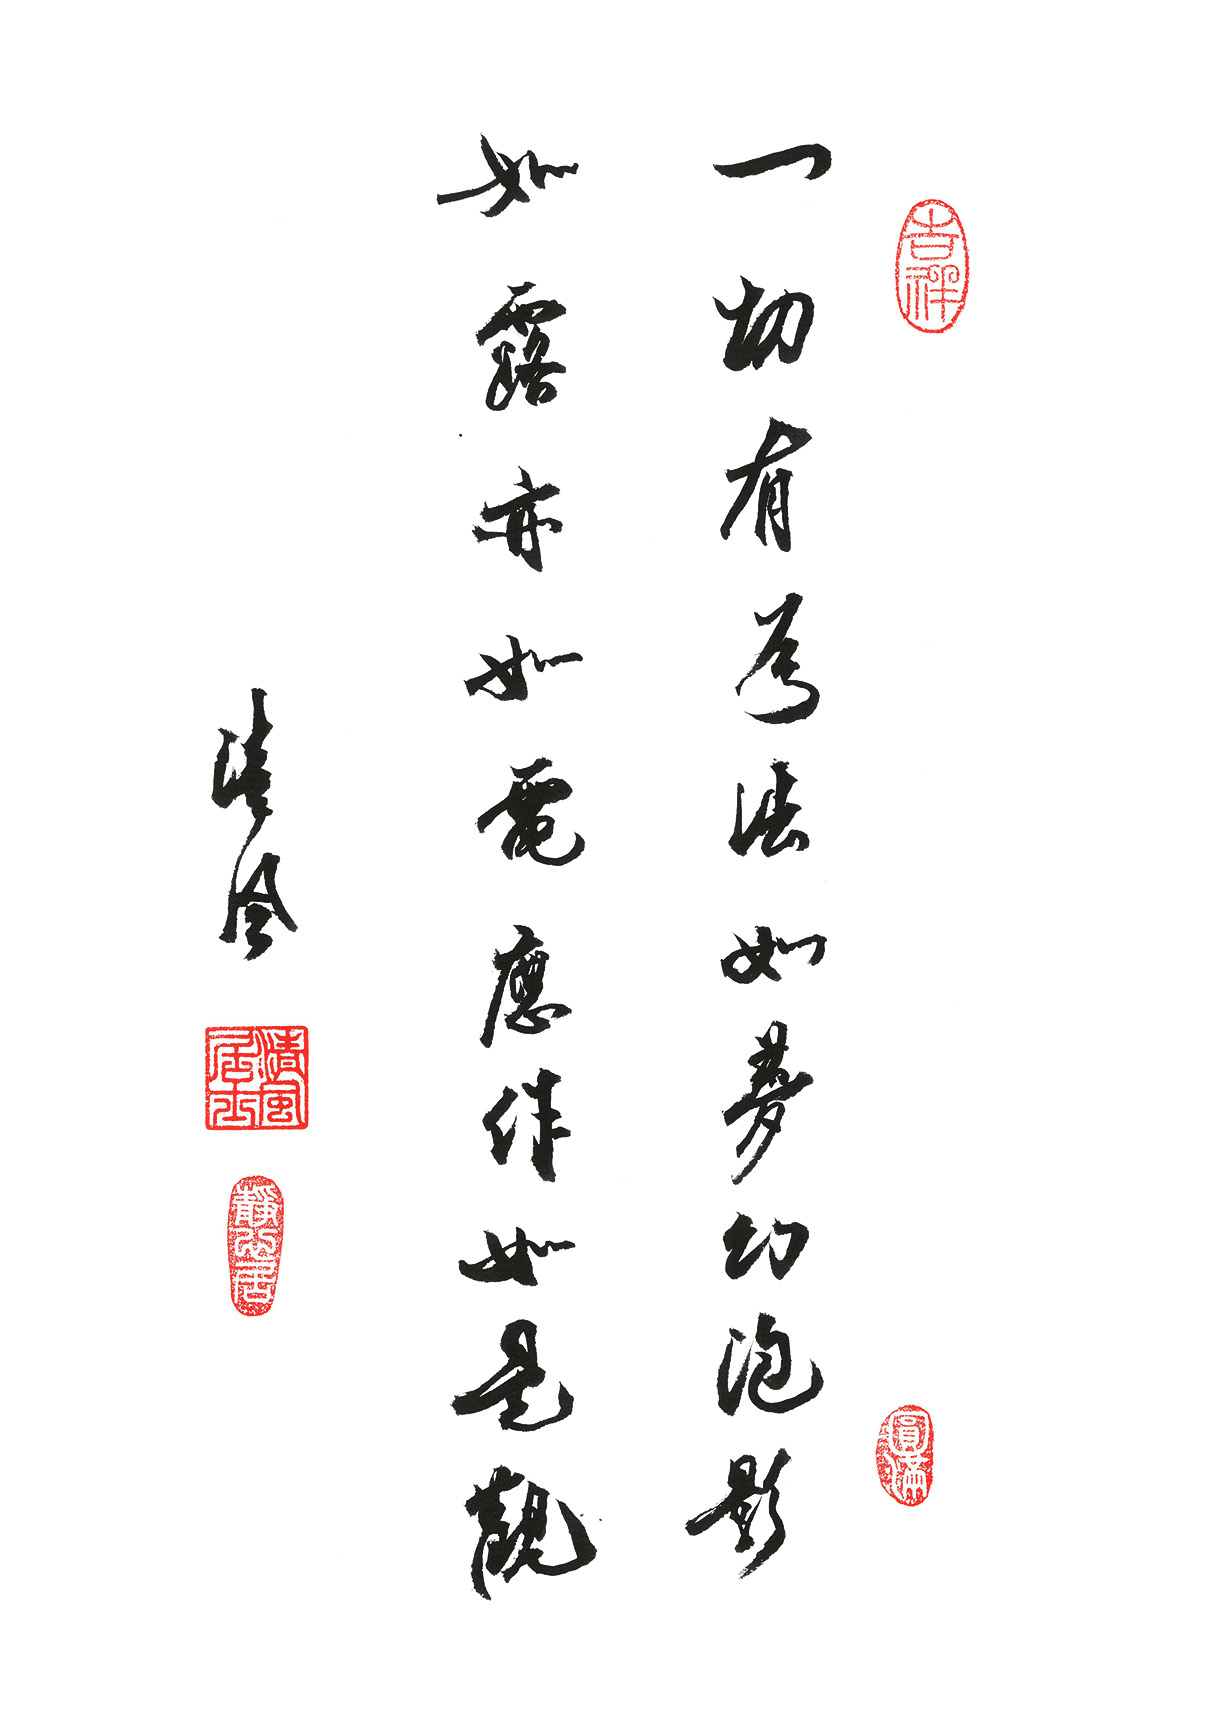 吉祥
一切有为法如夢幻泡影
如露亦如電應作如是觀
清风
清風居士
靜心居
圓滿